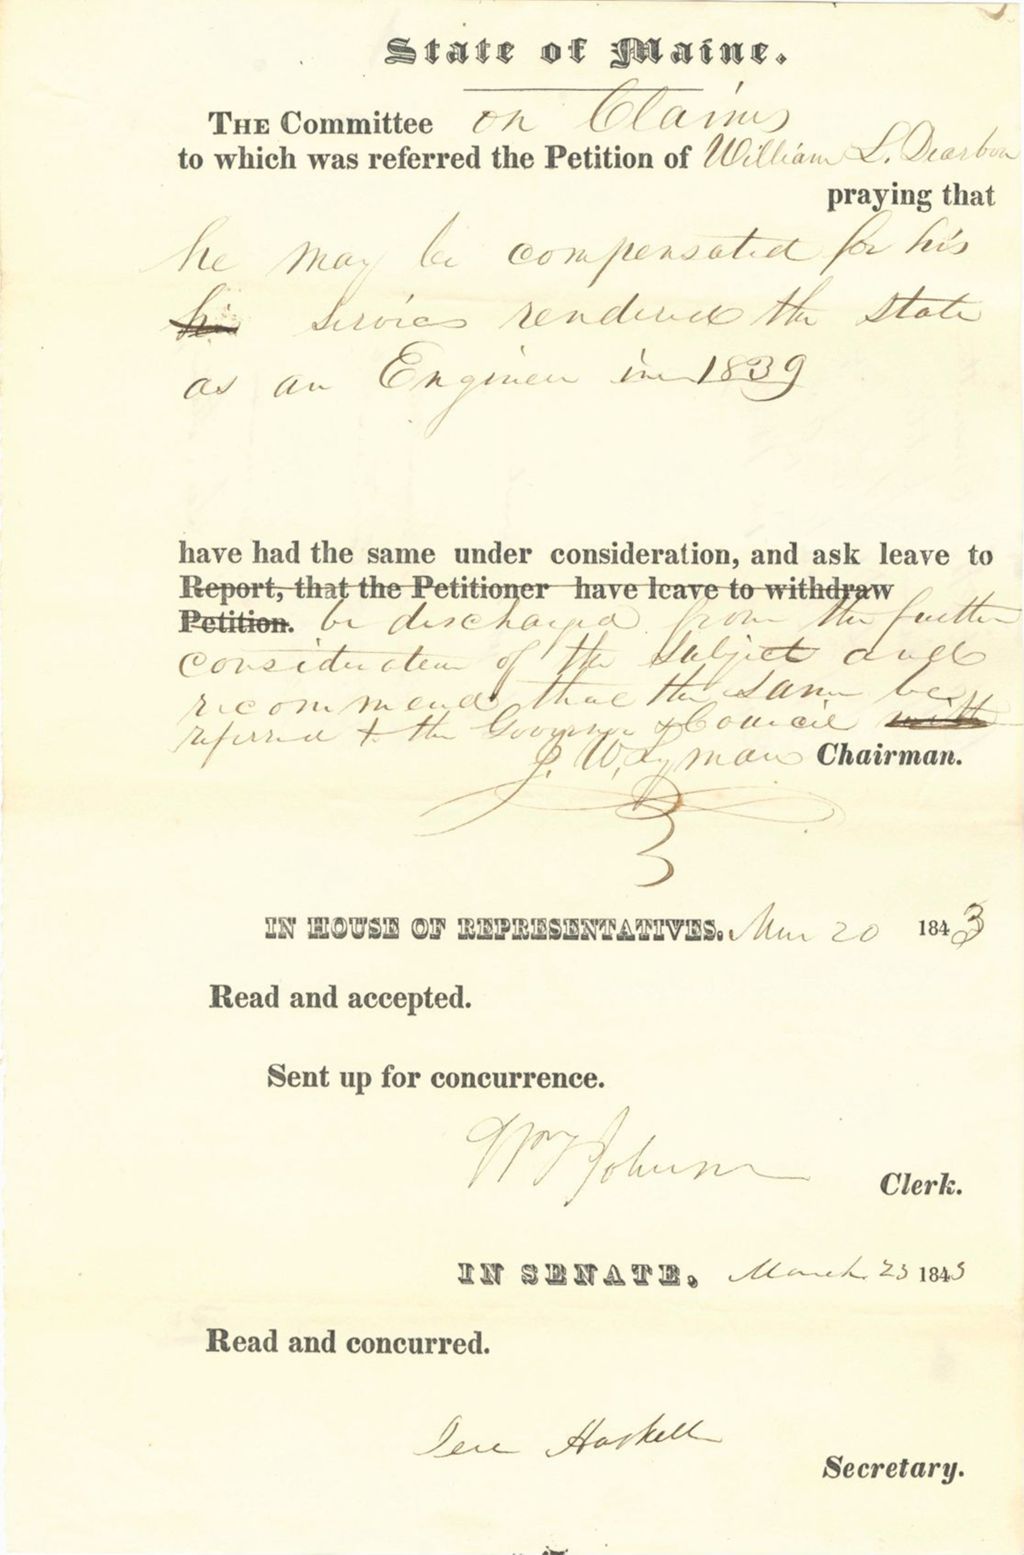 State of Maine.
THE Committee on Claims
to which was referred the Petition of William L. Dearborn
praying that
he may be compensated for his
his services rendered the State
as an Engineer in 1839
have had the same under consideration, and ask leave to
Report, that the Petitioner have leave to withdraw
Petition. be discharged from the further
consideration of the subject and
recommend that the same be
referred to the Governor & Council with
J. W. Lyman Chairman.
IN HOUSE OF REPRESENTATIVES. Mar 20 1843
Read and accepted.
Sent up for concurrence.
Wm T Johnson
Clerk.
IN SENATE, March 23 1843
Read and concurred.
Jere Haskell
Secretary.